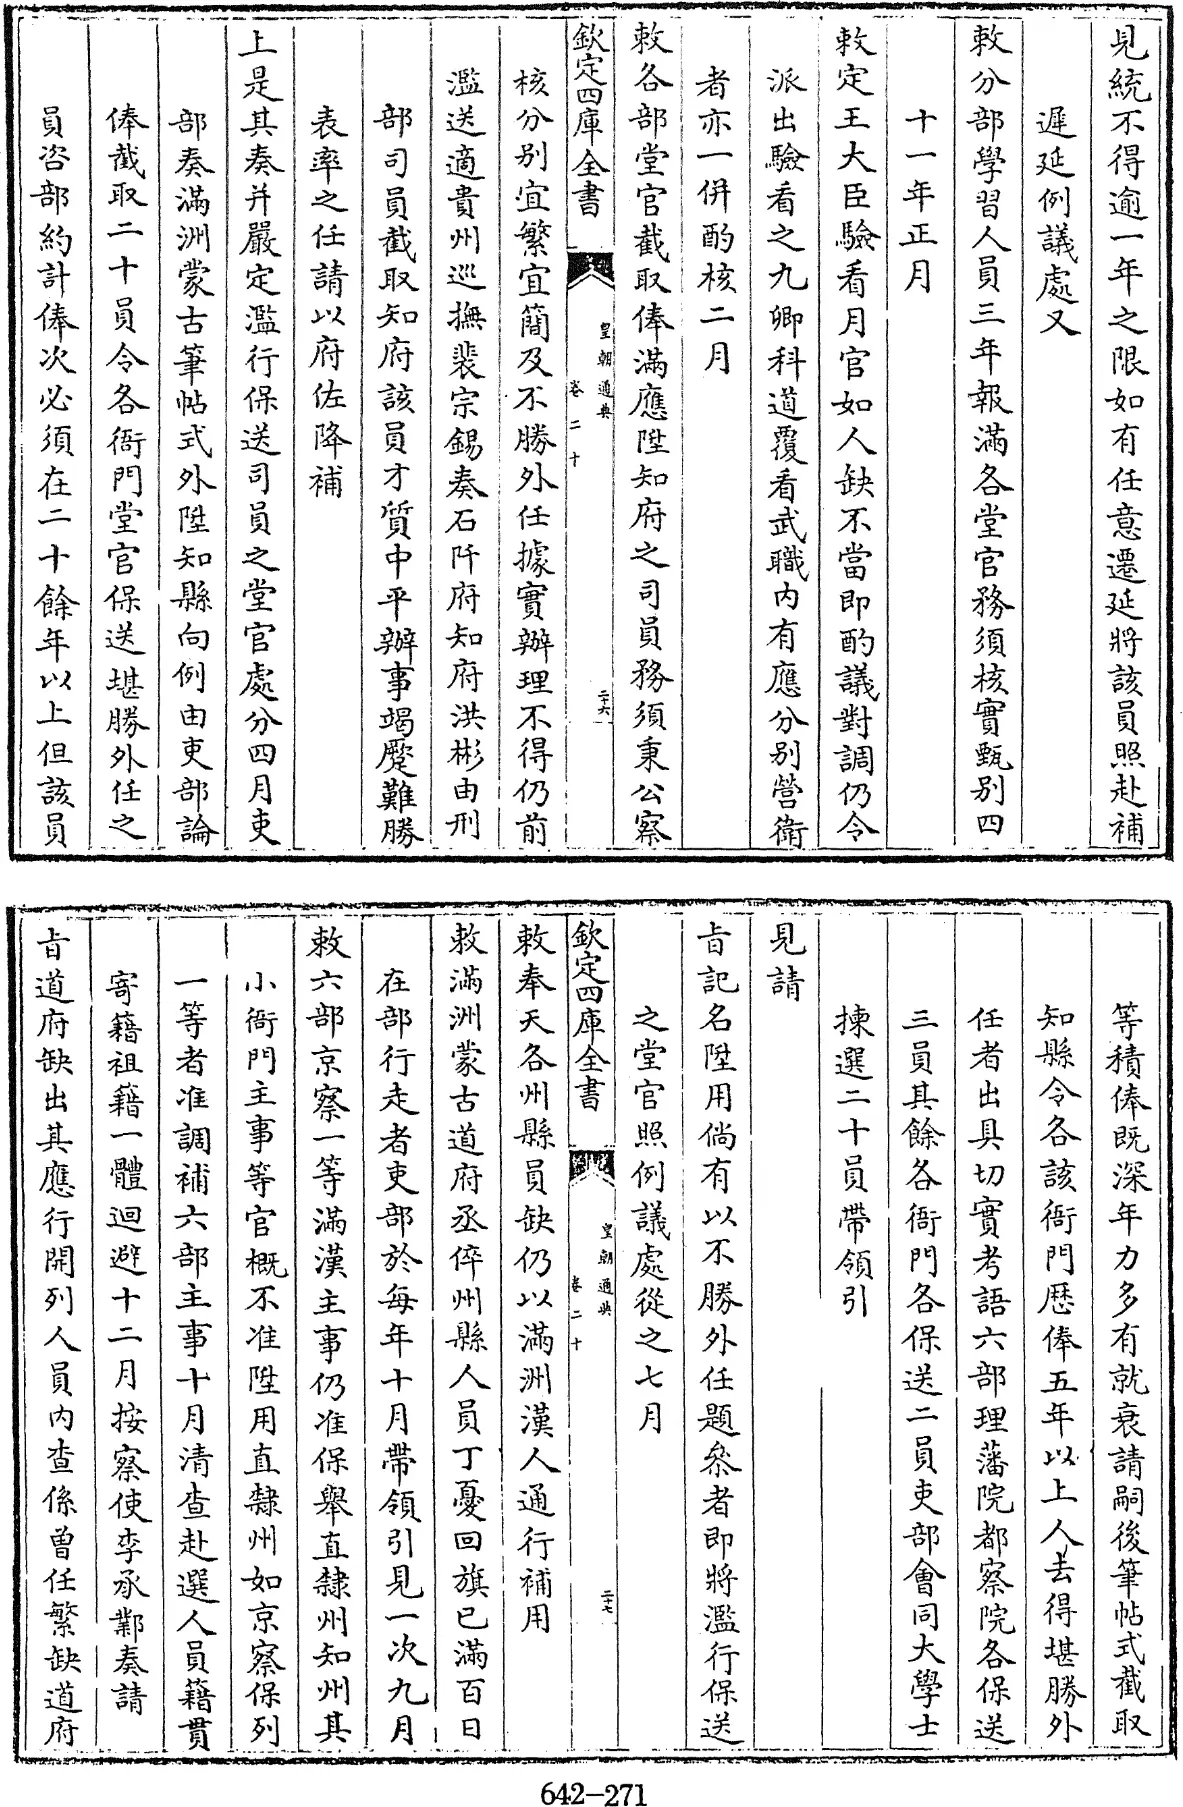 見統不得逾一年之限如有任意遷延將該員照赴補
遲延例議處又
敕分部學習人員三年報滿各堂官務須核實甄别四
十一年正月
敕定王大臣驗看月官如人缺不當即酌議對調仍令
派出驗看之九卿科道覆看武職内有應分别營衛
者亦一併酌核二月
敕各部堂官截取俸滿應陞知府之司員務須秉公察
欽定四庫全書
皇朝通典
卷二十
二十六
核分别宜繁宜簡及不勝外任據實辦理不得仍前
濫送適貴州巡撫裴宗錫奏石阡府知府洪彬由刑
部司員截取知府該員才質中平辦事竭蹷難勝
表率之任請以府佐降補
上是其奏并嚴定濫行保送司員之堂官處分四月吏
部奏滿洲蒙古筆帖式外陞知縣向例由吏部論
俸截取二十員令各衙門堂官保送堪勝外任之
員咨部約計俸次必須在二十餘年以上但該員
等積俸既深年力多有就衰請嗣後筆帖式截取
知縣令各該衙門歷俸五年以上人去得堪勝外
任者出具切實考語六部理藩院都察院各保送
三員其餘各衙門各保送二員吏部會同大學士
揀選二十員帶領引
見請
旨記名陞用倘有以不勝外任題叅者即將濫行保送
之堂官照例議處從之七月
欽定四庫全書
皇朝通典
卷二十
二十七
敕奉天各州縣員缺仍以滿洲漢人通行補用
敕滿洲蒙古道府丞倅州縣人員丁憂回旗已滿百日
在部行走者吏部於每年十月帶領引見一次九月
敕六部京察一等滿漢主事仍准保舉直隸州知州其
小衙門主事等官概不准陞用直隸州如京察保列
一等者准調補六部主事十月清查赴選人員籍貫
寄籍祖籍一體迴避十二月按察使李承鄴奏請
旨道府缺出其應行開列人員内查係曾任繁缺道府
642-271